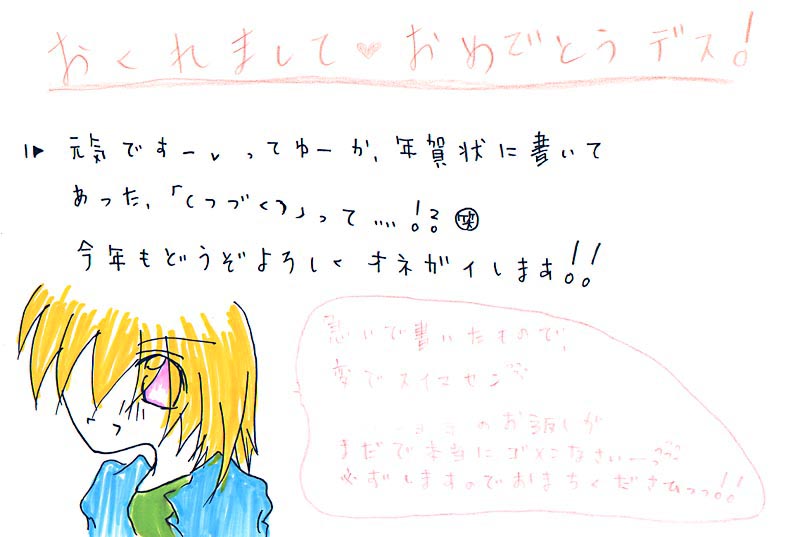 おくれまして♥おめでとうデス!
1▶ 元気ですー、ってゆーか、年賀状に書いて
あった、「(つづく)」って....!?㊗笑
今年もどうぞよろしくオネガイします!!
急いで書いたもので、
変でスイマセン
のお返しが
まだで本当にゴメンなさいーっ
必ずしますのでおまちくださいっっ!!